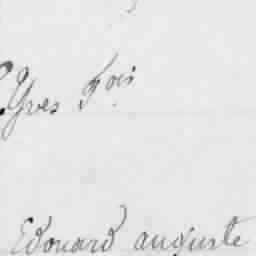 Yves Fois
Edouard auguste